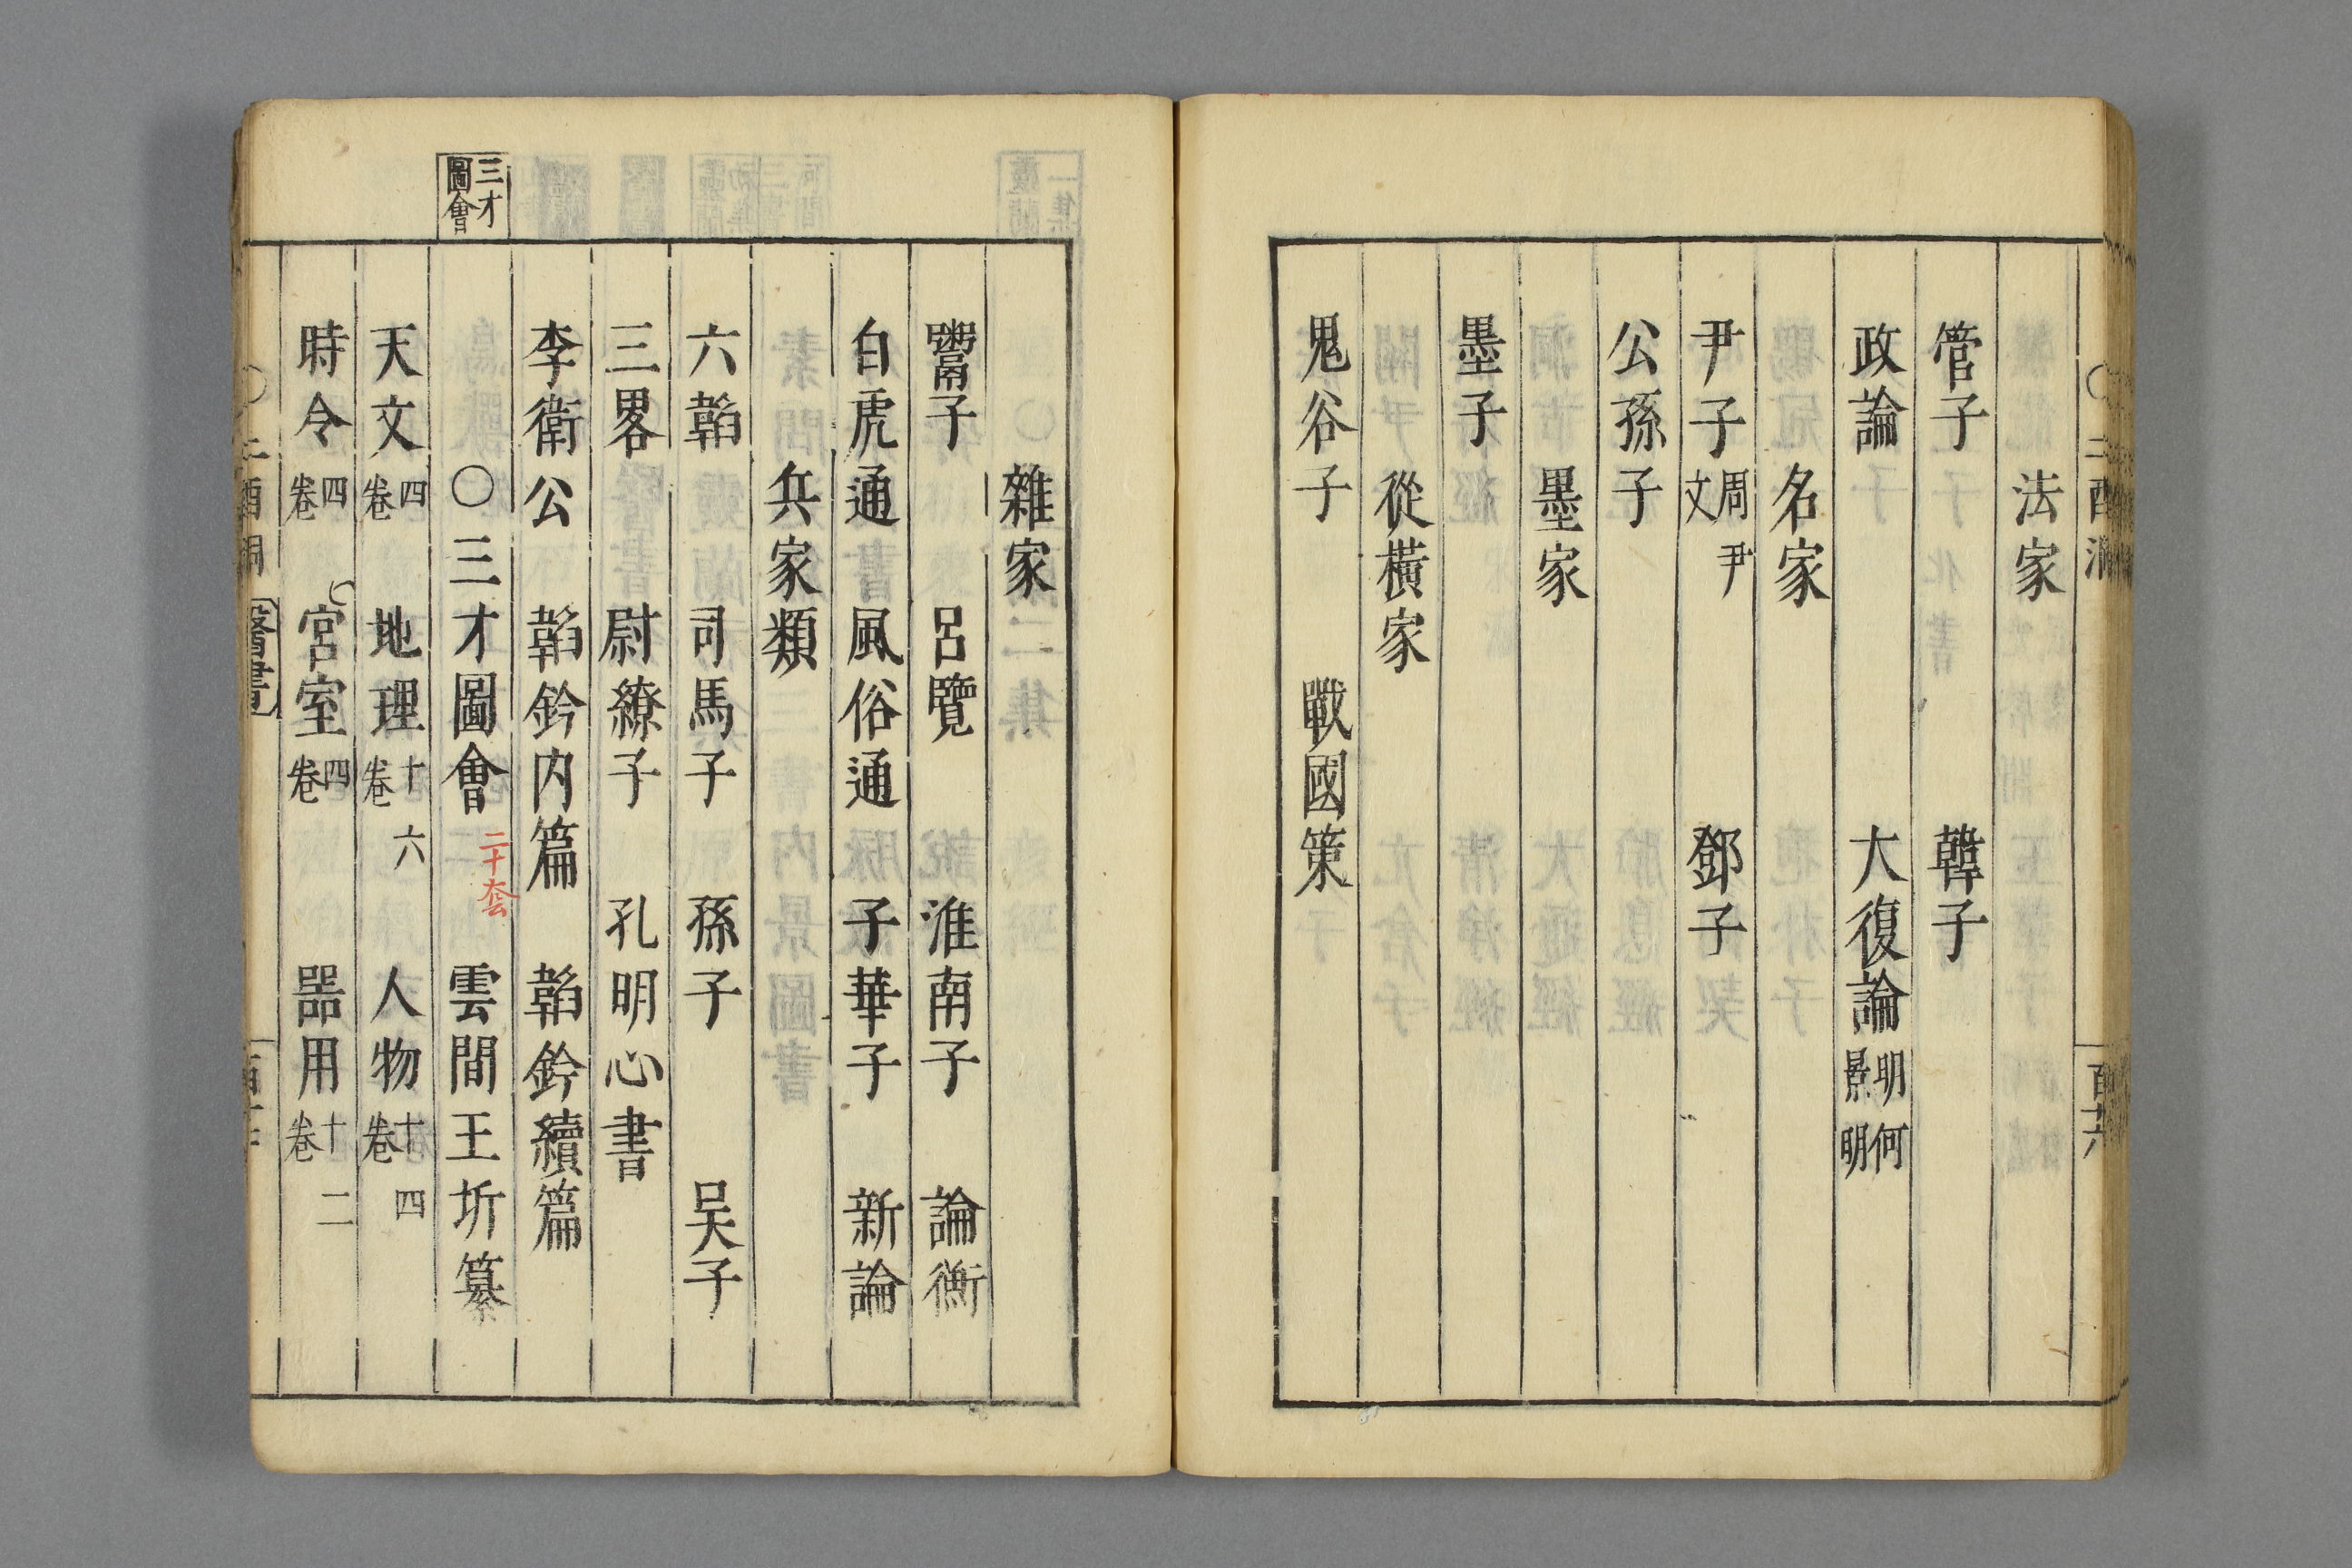 法家
管子 韓子
政論 大復論 明何景明
名家
尹子 周尹文 鄧子
公孫子
墨家
墨子
從橫家
鬼谷子 戰國策
雜家
鬻子 呂覽 淮南子 論衡
白虎通 風俗通 子華子 新論
兵家類
六韜 司馬子 孫子 吳子
三畧 尉繚子 孔明心書
李衛公 韜鈐内篇 韜鈐續篇
三才圖會
〇三才圖會 二十套 雲間王圻纂
天文 四卷 地理 十六卷 人物 十四卷
時令 四卷 宮室 四卷 器用 十二卷